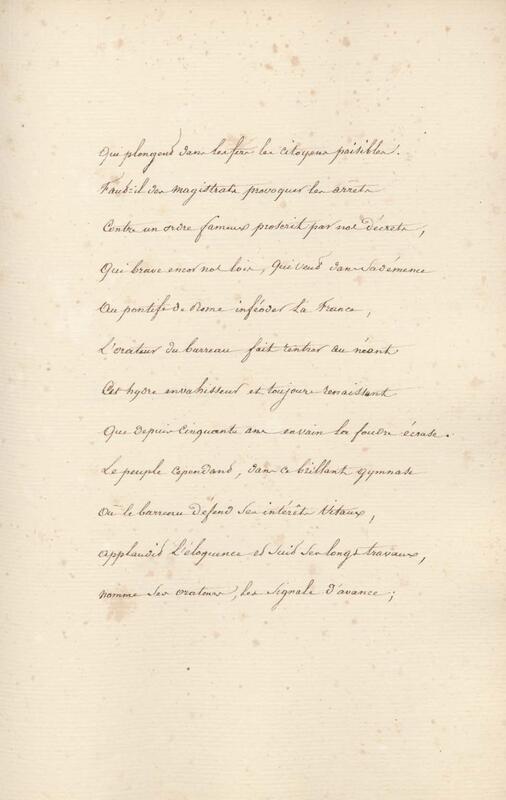 Qui plongent dans les fers les citoyens paisibles.
Faut-il des magistrats provoquer les arrêts
Contre un ordre fameux proscrit par nos décrets,
Qui brave encor nos lois, qui veut dans sa démence
Au pontife de Rome inféoder la France,
L'orateur du barreau fait rentrer au néant
Cet hydre envahisseur et toujours renaissant
Que depuis cinquante ans en vain la foudre écrase.
Le peuple cependant, dans ce brillant gymnase
Où le barreau défend ses intérêts vitaux,
applaudit l'éloquence et suit ses longs travaux,
nomme ses orateurs, les signale d'avance ;